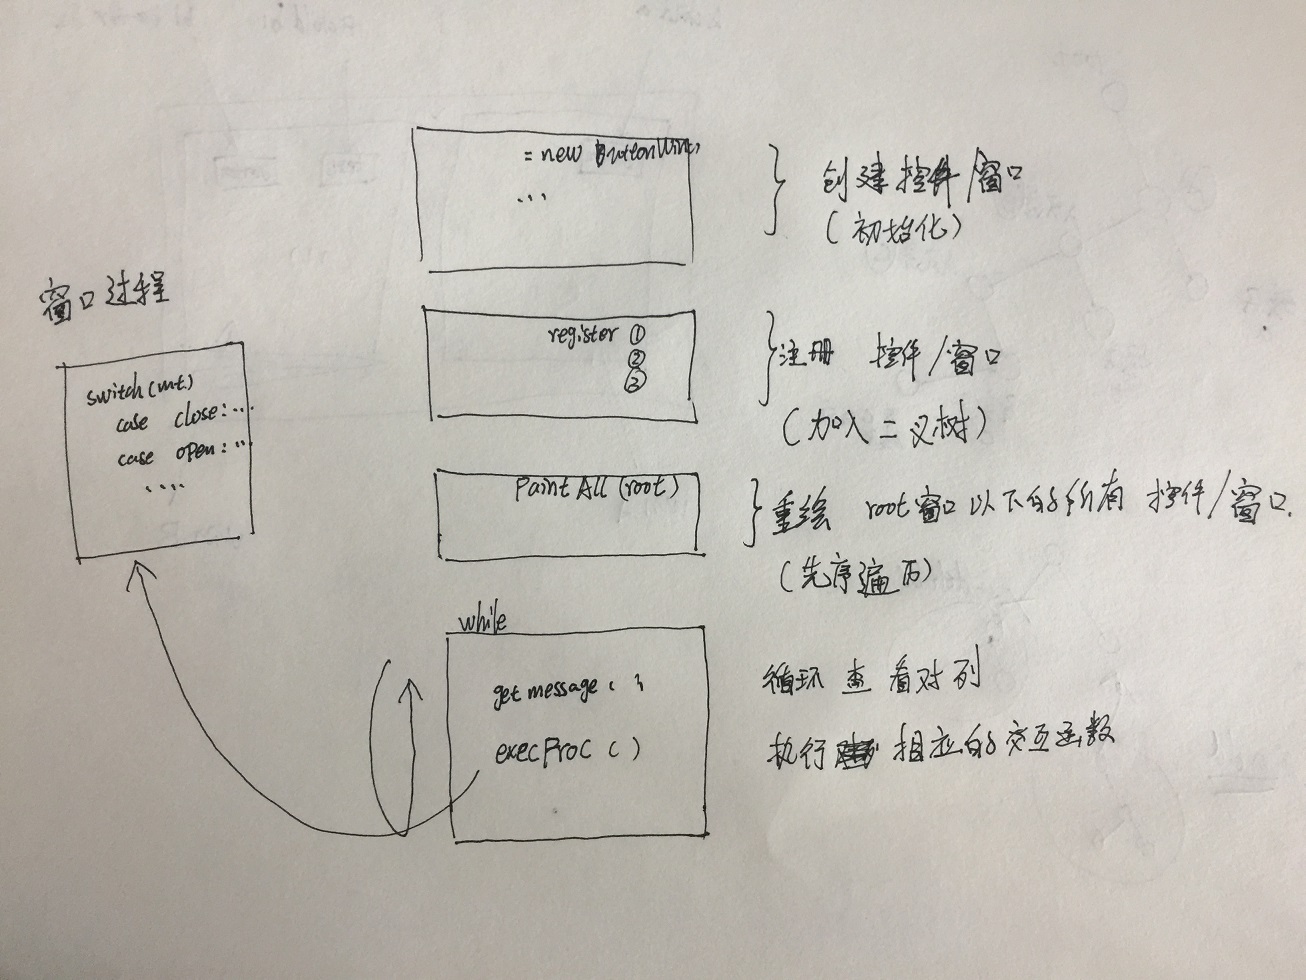 = new ButtonWin
...
创建控件/窗口
(初始化)
窗口过程
switch(mt)
case close:...
case open:..
....
register ①
②
③
注册 控件/窗口
(加入二叉树)
Paint All (root)
重绘 root窗口以下的所有 控件/窗口.
(先序遍历)
while
get message ( )
execProc ( )
循环查看对列
执行 相应的交互函数